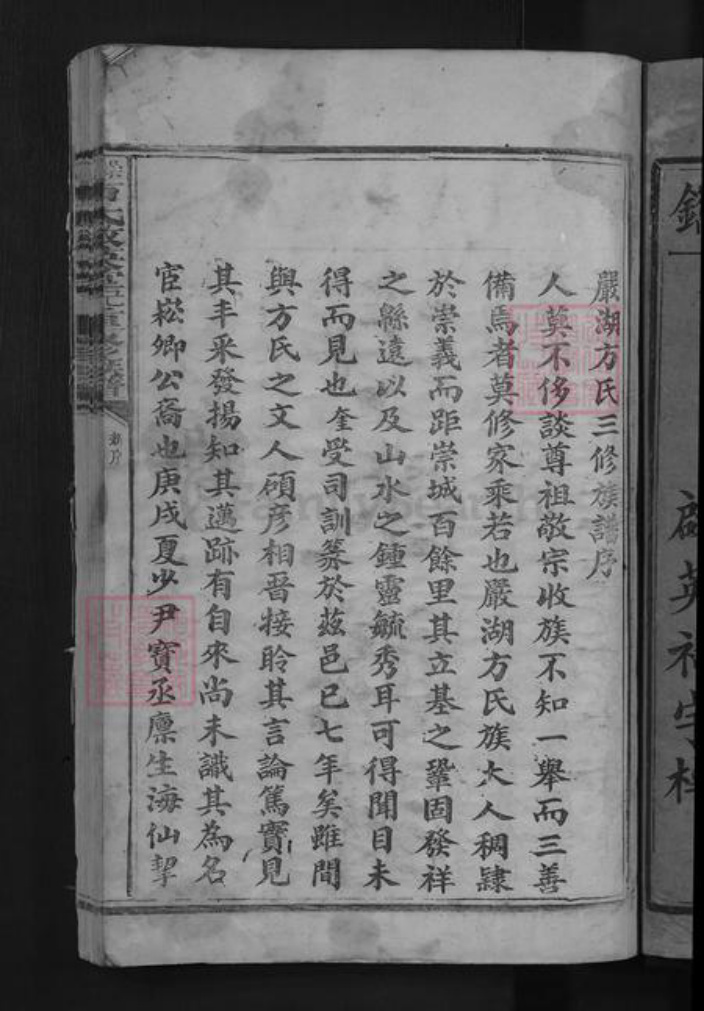 嚴湖方氏三修族譜序
人莫不侈談尊祖敬宗收族不知一舉而三善
備焉者莫修家乘若也嚴湖方氏族大人稠隸
於崇義而距崇城百餘里其立基之鞏固發祥
之綿遠以及山水之鍾靈毓秀耳可得聞目未
得而見也奎受司訓篆於茲邑已七年矣雖間
與方氏之文人碩彥相晋接聆其言論篤實見
其丰采發揚知其邁跡有自來尚未識其為名
宦崧卿公裔也庚戌夏少尹寶丞廪生海仙挈